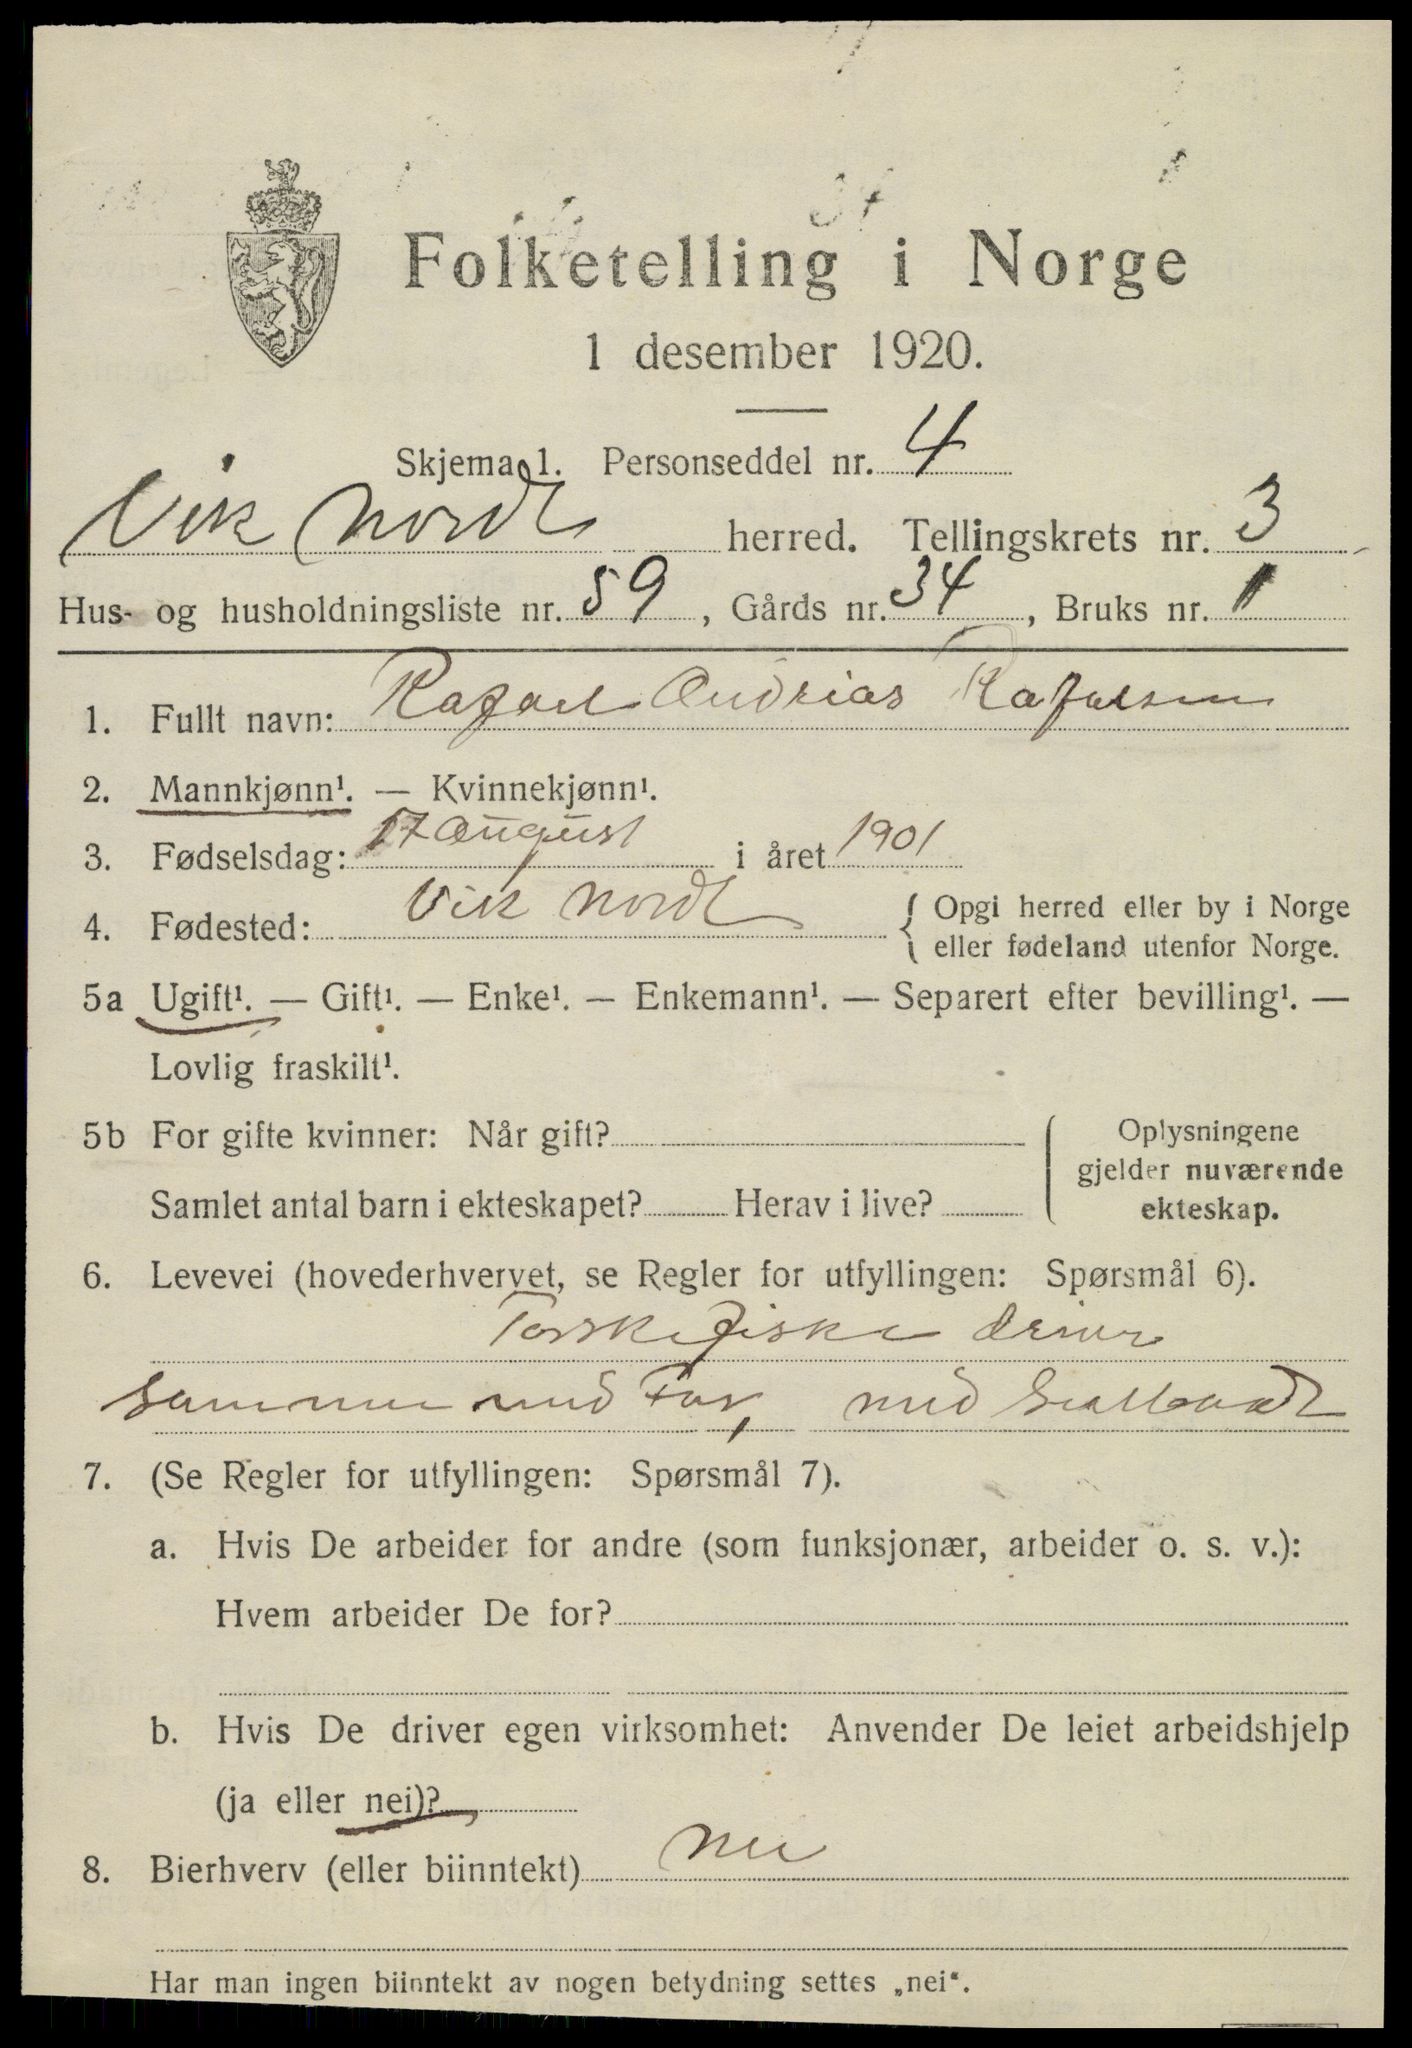 Folketelling i Norge
1 desember 1920.
Skjema 1. Personseddel nr. 4
Vik Nordl herred. Tellingskrets nr. 3
Hus- og husholdningsliste nr. 59, Gårds nr. 34, Bruks nr. 1
1. Fullt navn: Rafael Andrias Rafaelsen
2. Mannkjønn¹. — Kvinnekjønn¹.
3. Fødselsdag: 17 August i året 1901
4. Fødested: Vik Nordl { Opgi herred eller by i Norge
eller fødeland utenfor Norge.
5a Ugift¹. — Gift¹. — Enke¹. — Enkemann¹. — Separert efter bevilling¹. —
Lovlig fraskilt¹.
5b For gifte kvinner: Når gift?
Samlet antal barn i ekteskapet? Herav i live?
Oplysningene
gjelder nuværende
ekteskap.
6. Levevei (hovederhvervet, se Regler for utfyllingen: Spørsmål 6).
Torskefiske driver
sammen med Far, med
7. (Se Regler for utfyllingen: Spørsmål 7).
a. Hvis De arbeider for andre (som funksjonær, arbeider o. s. v.):
Hvem arbeider De for?
b. Hvis De driver egen virksomhet: Anvender De leiet arbeidshjelp
(ja eller nei)?
8. Bierhverv (eller biinntekt) nei
Har man ingen biinntekt av nogen betydning settes „nei“.